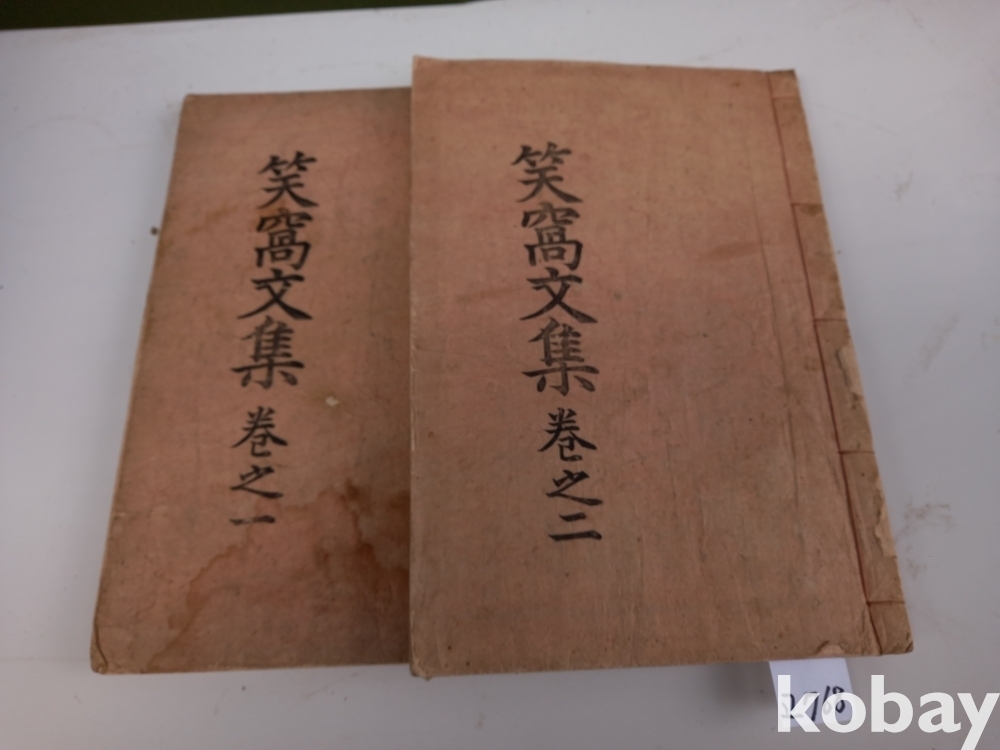 笑窩文集 卷之一
笑窩文集 卷之二
kobay